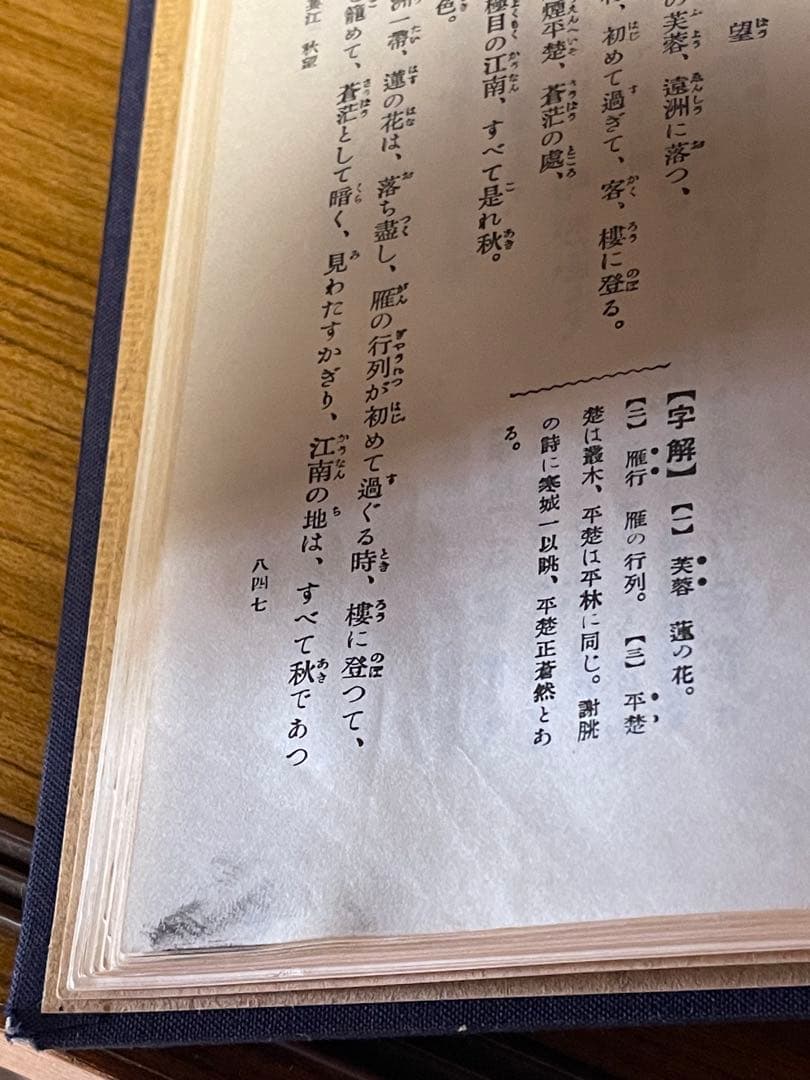 望
の芙蓉、遠洲に落つ、
初めて過ぎて、客、樓に登る。
煙平楚、蒼茫の處、
極目の江南、すべて是れ秋。
色。
【字解】【一】芙蓉 蓮の花。
【二】雁行 雁の行列。【三】平楚
楚は叢木、平楚は平林に同じ。謝朓
の詩に寒城一以眺、平楚正蒼然とあ
る。
洲一帶、蓮の花は、落ち盡し、雁の行列が初めて過ぐる時、樓に登つて、
籠めて、蒼茫として暗く、見わたすかぎり、江南の地は、すべて秋であつ
江 秋望
八四七